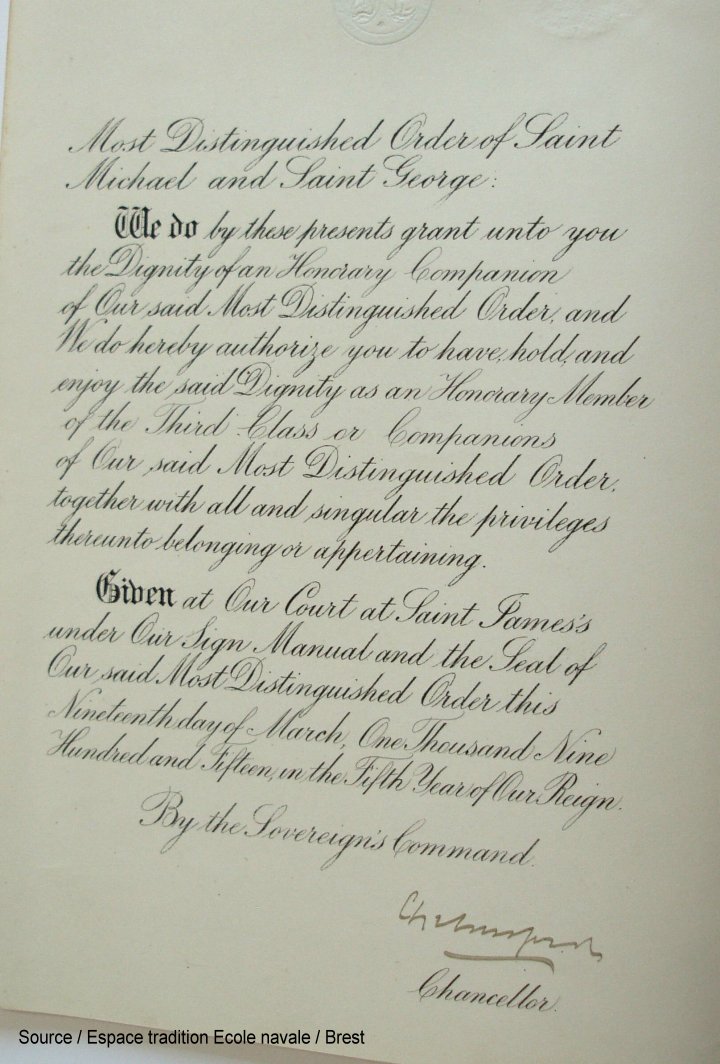 Most Distinguished Order of Saint
Michael and Saint George:
We do by these presents grant unto you
the Dignity of an Honorary Companion
of Our said Most Distinguished Order, and
We do hereby authorize you to have, hold, and
enjoy the said Dignity as an Honorary Member
of the Third Class or Companions
of Our said Most Distinguished Order,
together with all and singular the privileges
thereunto belonging or appertaining.
Given at Our Court at Saint James's
under Our Sign Manual and the Seal of
Our said Most Distinguished Order this
Nineteenth day of March, One Thousand Nine
Hundred and Fifteen, in the Fifth Year of Our Reign.
By the Sovereign's Command.
Chelmsford
Chancellor.
Source / Espace tradition Ecole navale / Brest